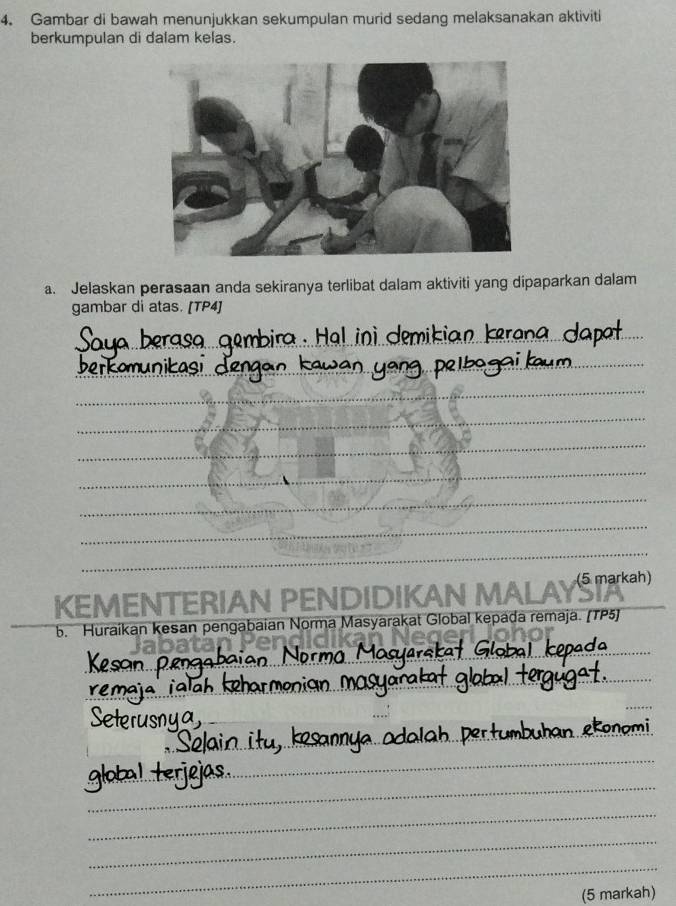 4. Gambar di bawah menunjukkan sekumpulan murid sedang melaksanakan aktiviti
berkumpulan di dalam kelas.
a. Jelaskan perasaan anda sekiranya terlibat dalam aktiviti yang dipaparkan dalam
gambar di atas. [TP4]
Saya berasa gembira. Hal ini demikian kerana dapat
berkomunikasi dengan kawan yang pelbagai kaum
(5 markah)
KEMENTERIAN PENDIDIKAN MALAYSIA
b. Huraikan kesan pengabaian Norma Masyarakat Global kepada remaja. [TP5]
Jabatan Pendidikan Negeri Johor
Kesan pengabaian Norma Masyarakat Global kepada
remaja ialah keharmonian masyarakat global tergugat.
Seterusnya,
. Selain itu, kesannya adalah pertumbuhan ekonomi
global terjejas.
(5 markah)